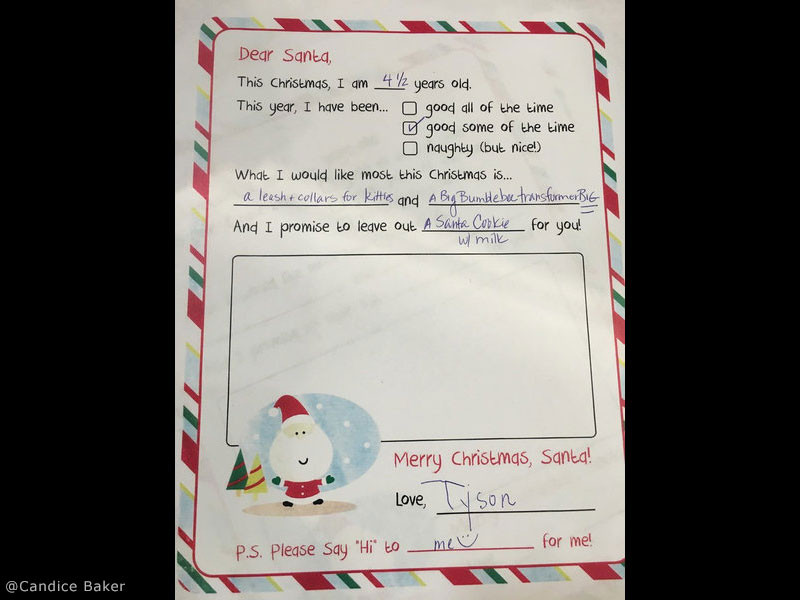 Dear Santa,
This Christmas, I am 4 1/2 years old.
This year, I have been... good all of the time
good some of the time
naughty (but nice!)
What I would like most this Christmas is...
a leash + collars for kitties and A Big Bumblebee transformer BIG
And I promise to leave out A Santa Cookie for you!
w/ milk
Merry Christmas, Santa!
Love, Tyson
P.S. Please Say "Hi" to me for me!
@Candice Baker